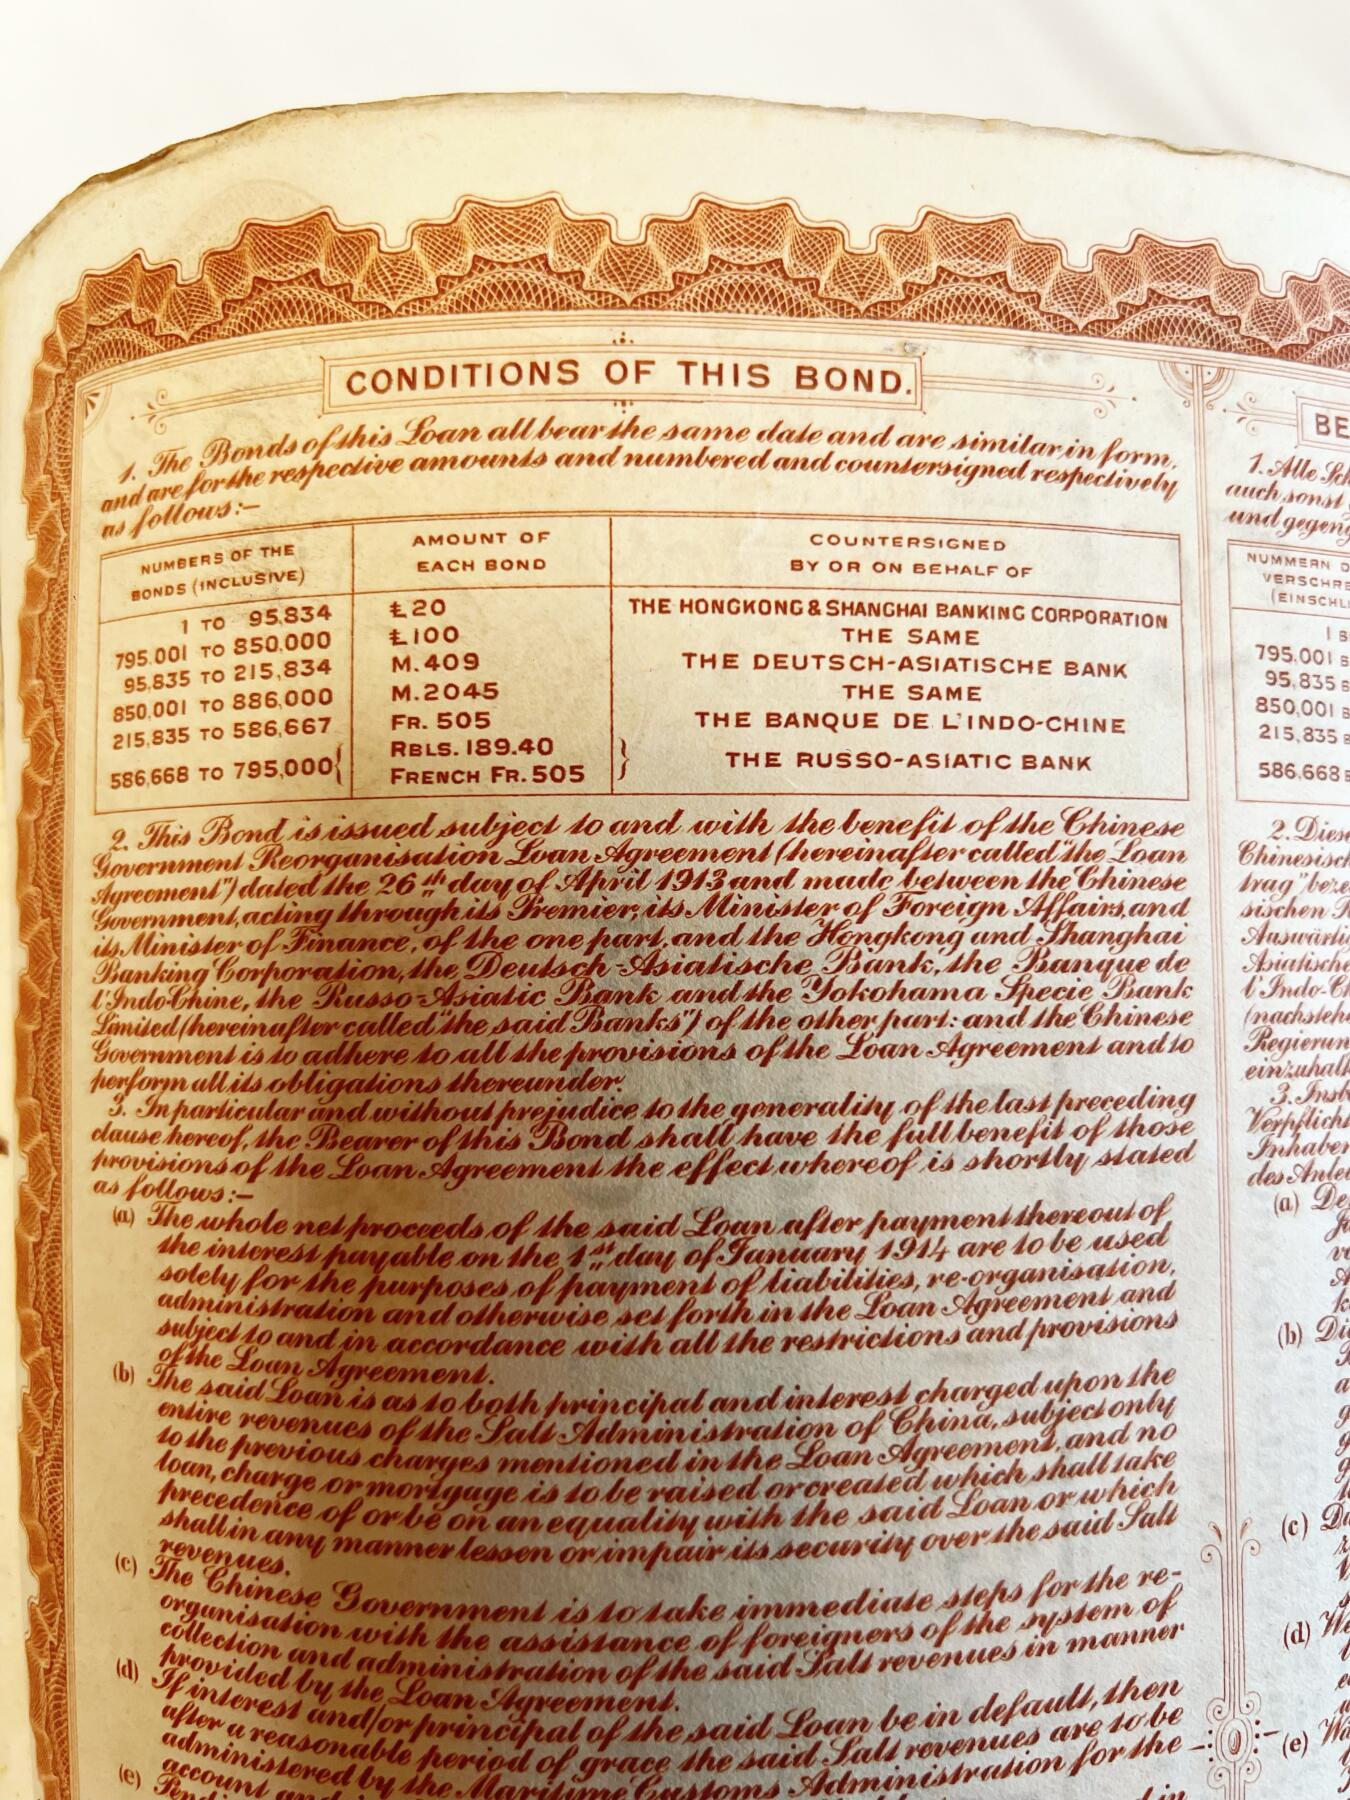 CONDITIONS OF THIS BOND.
1. The Bonds of this Loan all bear the same date and are similar in form,
and are for the respective amounts and numbered and countersigned respectively
as follows:—
NUMBERS OF THE BONDS (INCLUSIVE) AMOUNT OF EACH BOND COUNTERSIGNED BY OR ON BEHALF OF
1 TO 95,834 £20 THE HONGKONG & SHANGHAI BANKING CORPORATION
795,001 TO 850,000 £100 THE SAME
95,835 TO 215,834 M. 409 THE DEUTSCH-ASIATISCHE BANK
850,001 TO 886,000 M. 2045 THE SAME
215,835 TO 586,667 FR. 505 THE BANQUE DE L'INDO-CHINE
586,668 TO 795,000 { RBLS. 189.40 } THE RUSSO-ASIATIC BANK
FRENCH FR. 505
2. This Bond is issued subject to and with the benefit of the Chinese
Government Reorganisation Loan Agreement (hereinafter called "the Loan
Agreement") dated the 26th day of April 1913 and made between the Chinese
Government, acting through its Premier, its Minister of Foreign Affairs, and
its Minister of Finance, of the one part, and the Hongkong and Shanghai
Banking Corporation, the Deutsch-Asiatische Bank, the Banque de
l'Indo-Chine, the Russo-Asiatic Bank and the Yokohama Specie Bank
Limited (hereinafter called "the said Banks") of the other part: and the Chinese
Government is to adhere to all the provisions of the Loan Agreement and to
perform all its obligations thereunder.
3. In particular and without prejudice to the generality of the last preceding
clause hereof, the Bearer of this Bond shall have the full benefit of those
provisions of the Loan Agreement the effect whereof is shortly stated
as follows:—
(a) The whole net proceeds of the said Loan after payment thereout of
the interest payable on the 1st day of January 1914 are to be used
solely for the purposes of payment of liabilities, re-organisation,
administration and otherwise set forth in the Loan Agreement and
subject to and in accordance with all the restrictions and provisions
of the Loan Agreement.
(b) The said Loan is as to both principal and interest charged upon the
entire revenues of the Salt Administration of China, subject only
to the previous charges mentioned in the Loan Agreement, and no
loan, charge or mortgage is to be raised or created which shall take
precedence of or be on an equality with the said Loan or which
shall in any manner lessen or impair its security over the said Salt
revenues.
(c) The Chinese Government is to take immediate steps for the re-
organisation with the assistance of foreigners of the system of
collection and administration of the said Salt revenues in manner
provided by the Loan Agreement.
(d) If interest and/or principal of the said Loan be in default, then
after a reasonable period of grace the said Salt revenues are to be
administered by the Maritime Customs Administration for the
account and
(e)
BE
1. Alle
auch sonst
und gegen
NUMMERN
VERSCHRE
(EINSCHL
1
795,001
95,835
850,001
215,835
586,668
2. Diese
Chinesisch
trag"
sischen
Auswärtig
Asiatische
l'Indo-
(nachstehe
Regierun
einzuhal
3.
Verpflicht
Inhaber
des Anle
(a)
(b)
(c)
(d)
(e)